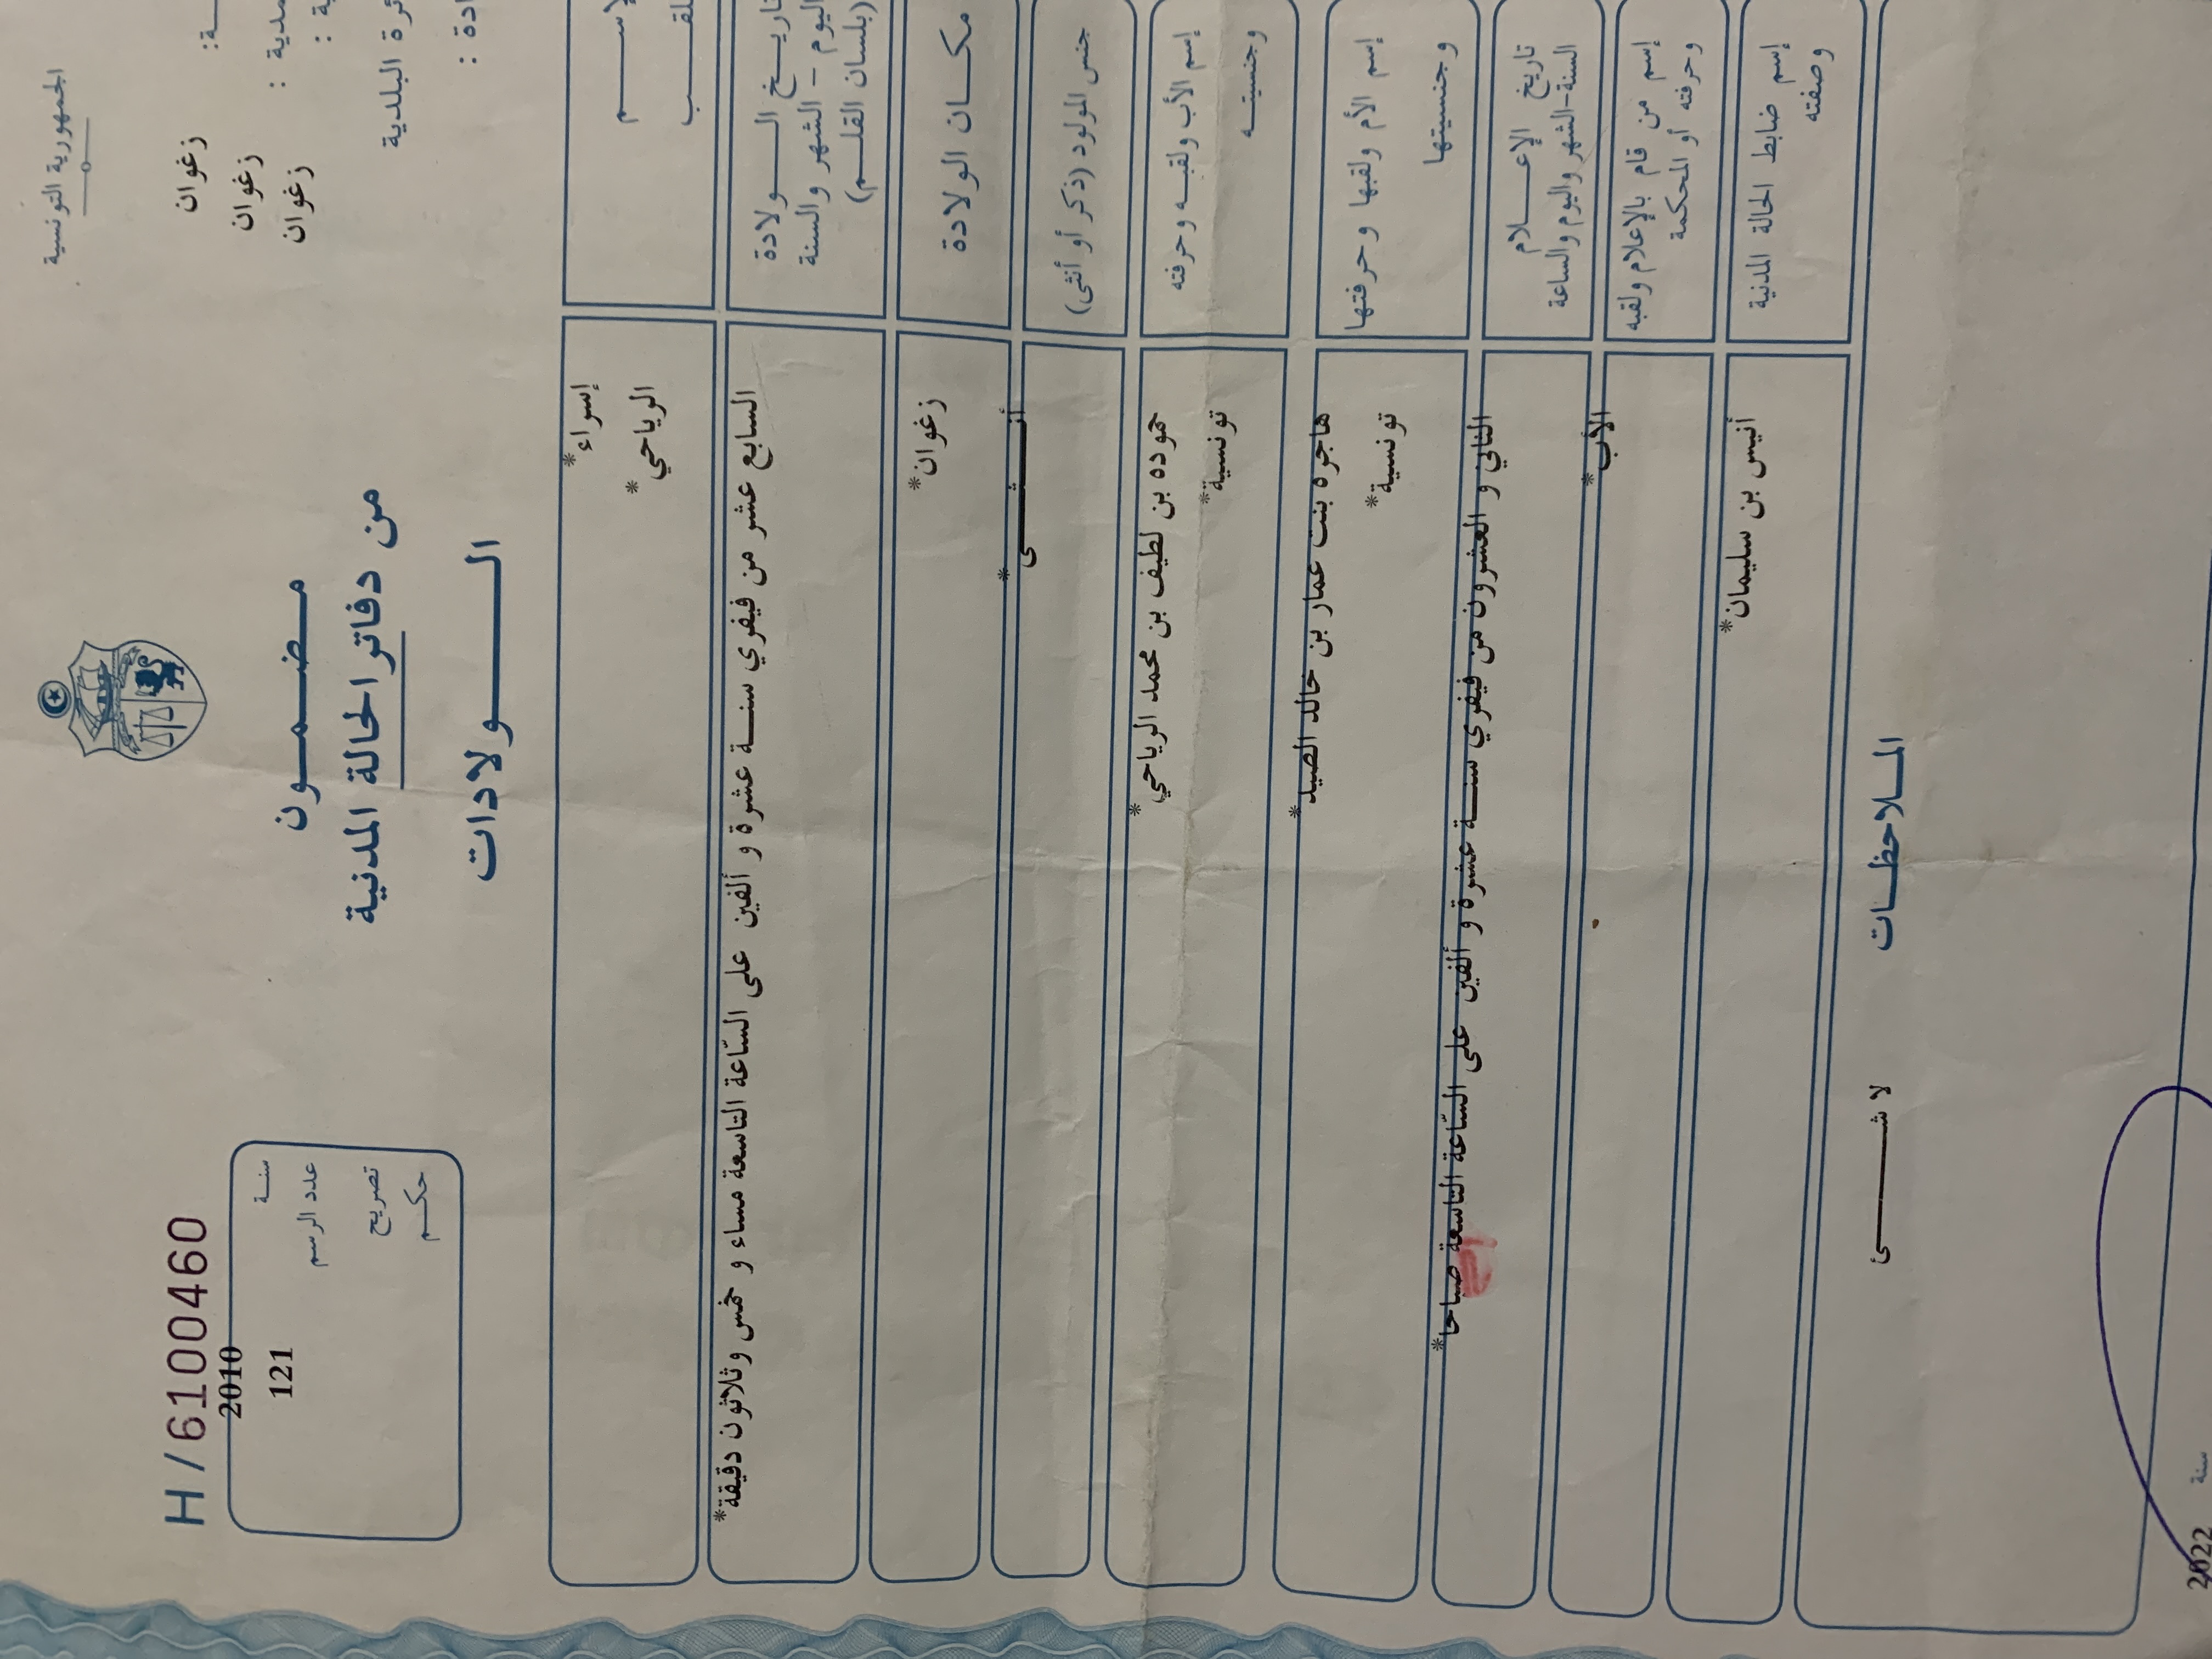 الجمهورية التونسية
زغوان
زغوان
زغوان
H / 6100460
2010
سنة
121
عدد الرسم
تصريح
حكم
مضمون
من دفاتر الحالة المدنية
الولادات
إسراء*
الرياحي*
السابع عشر من فيفري سنة عشرة و ألفين على الساعة التاسعة مساء و خمس وثلاثون دقيقة*
اليوم - الشهر والسنة
(بلسان القلم)
مكان الولادة
زغوان*
جنس المولود (ذكر أو أنثى)
أنثى*
إسم الأب ولقبه وحرفته
وجنسيته
حموده بن لطيف بن محمد الرياحي*
تونسية*
إسم الأم ولقبها وحرفتها
وجنسيتها
هاجره بنت عمار بن خالد الصيد*
تونسية*
تاريخ الإعلام
السنة-الشهر واليوم والساعة
الثاني و العشرون من فيفري سنة عشرة و ألفين على الساعة التاسعة صباحا*
إسم من قام بالإعلام ولقبه
وحرفته أو المحكمة
الأب*
إسم ضابط الحالة المدنية
وصفته
أنيس بن سليمان*
الملاحظات
لا شئ
سنة
2022